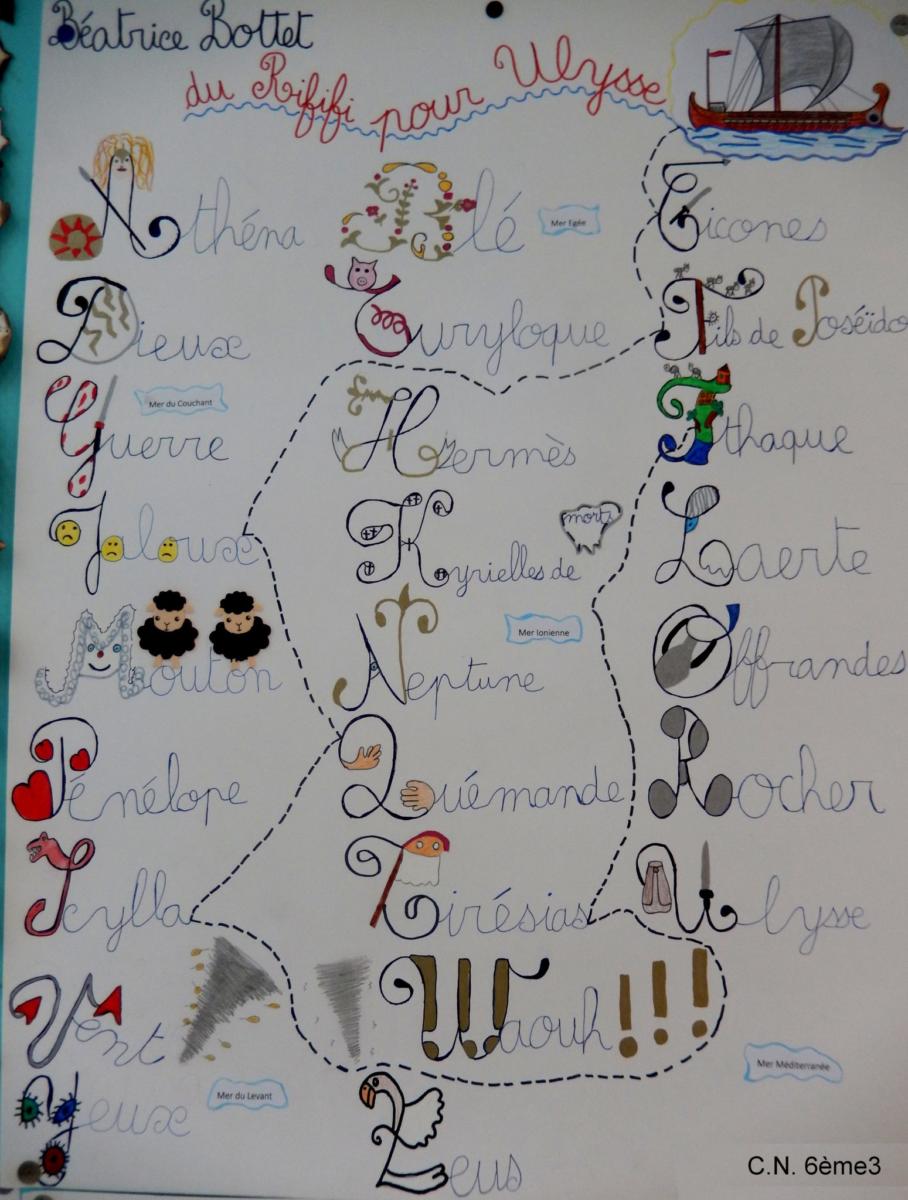 Béatrice Bottet
du Rififi pour Ulysse
Athéna
Blé
Mer Egée
Cicones
Dieux
Euryloque
Fils de Poséido
Guerre
Mer du Couchant
Hermès
Ithaque
Jaloux
Kyrielles de
morts
Laerte
Mouton
Neptune
Mer Ionienne
Offrandes
Pénélope
Quémande
Rocher
Scylla
Tirésias
Ulysse
Vent
Waouh!!!
Mer Méditerranée
Yeux
Mer du Levant
Zeus
C.N. 6ème3